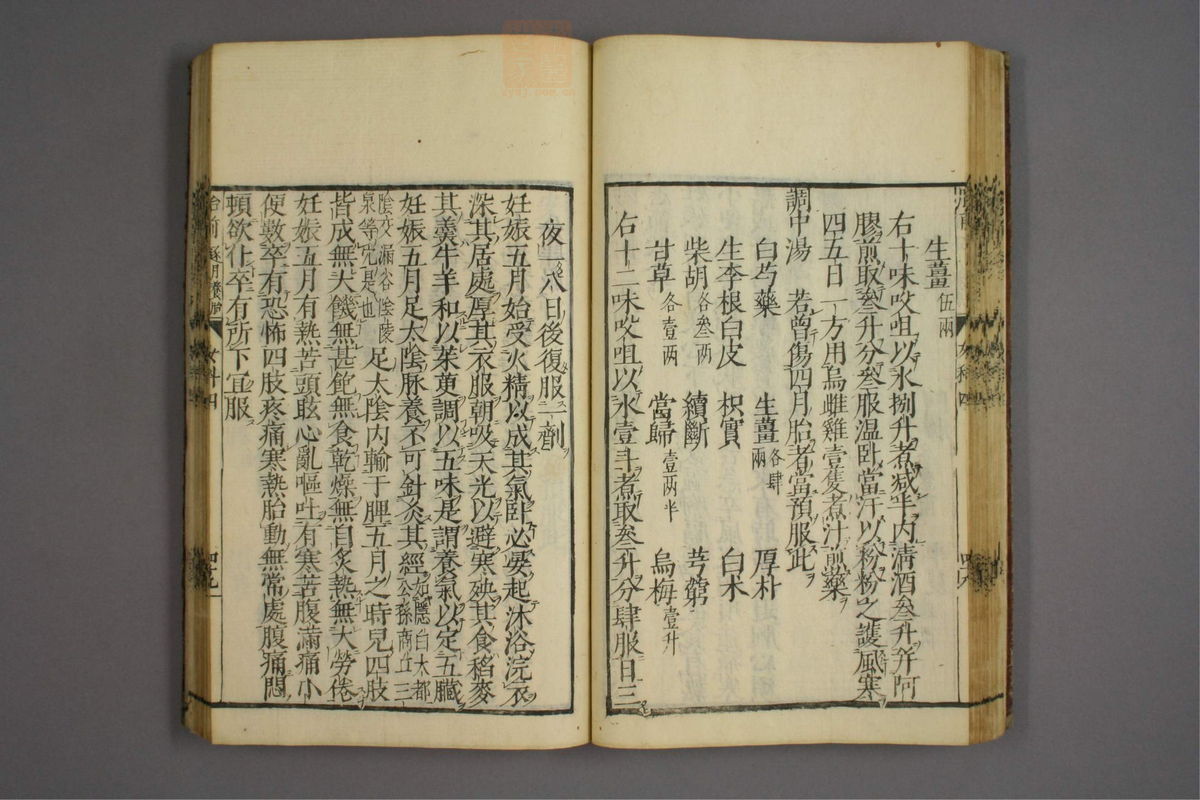 生薑伍兩
右十味㕮咀以水捌升煮減半內清酒叁升幷阿
膠煎取叁升分叁服温臥當汗以粉粉之護風寒
四五日一方用烏雌雞壹隻煮汁煎藥
調中湯　若曾傷四月胎者當預服此
白芍藥　生薑各肆兩　厚朴
生李根白皮　枳實　白朮
柴胡各叁兩　續斷　芎藭
甘草各壹兩　當歸壹兩半　烏梅壹升
右十二味㕮咀以水壹斗煮取叁升分肆服日三
夜一八日後復服一劑
妊娠五月始受火精以成其氣臥必晏起沐浴浣衣
深其居處厚其衣服朝吸天光以避寒殃其食稻麥
其羹牛羊和以茱萸調以五味是謂養氣以定五臟
妊娠五月足太陰脉養不可針灸其經如隱白太都公孫商丘三
陰交漏谷陰陵泉等穴是也足太陰内輸于脾五月之時兒四肢
皆成無大饑無甚飽無食乾燥無自炙熱無大勞倦
妊娠五月有熱苦頭眩心亂嘔吐有寒苦腹滿痛小
便數卒有恐怖四肢疼痛寒熱胎動無常處腹痛悶
頓欲仆卒有所下宜服
女科四